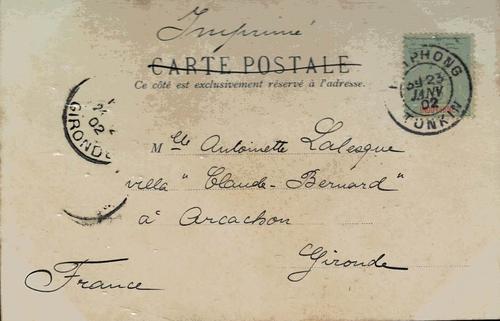 Imprimé
CARTE POSTALE
Ce côté est exclusivement réservé à l'adresse.
HAIPHONG
23
JANV
02
TONKIN
02
GIRONDE
Mlle Antoinette Lalesque
villa "Claude-Bernard"
à Arcachon
Gironde
France